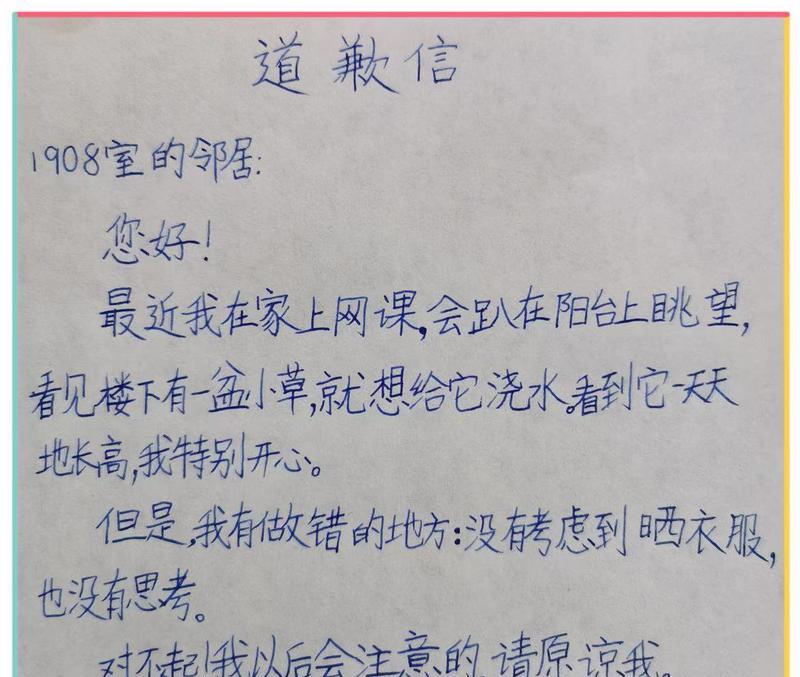 道歉信
1908室的邻居:
您好!
最近我在家上网课,会趴在阳台上眺望,
看见楼下有一盆小草,就想给它浇水。看到它一天天
地长高,我特别开心。
但是,我有做错的地方:没有考虑到晒衣服,
也没有思考。
对不起!我以后会注意的,请原谅我。